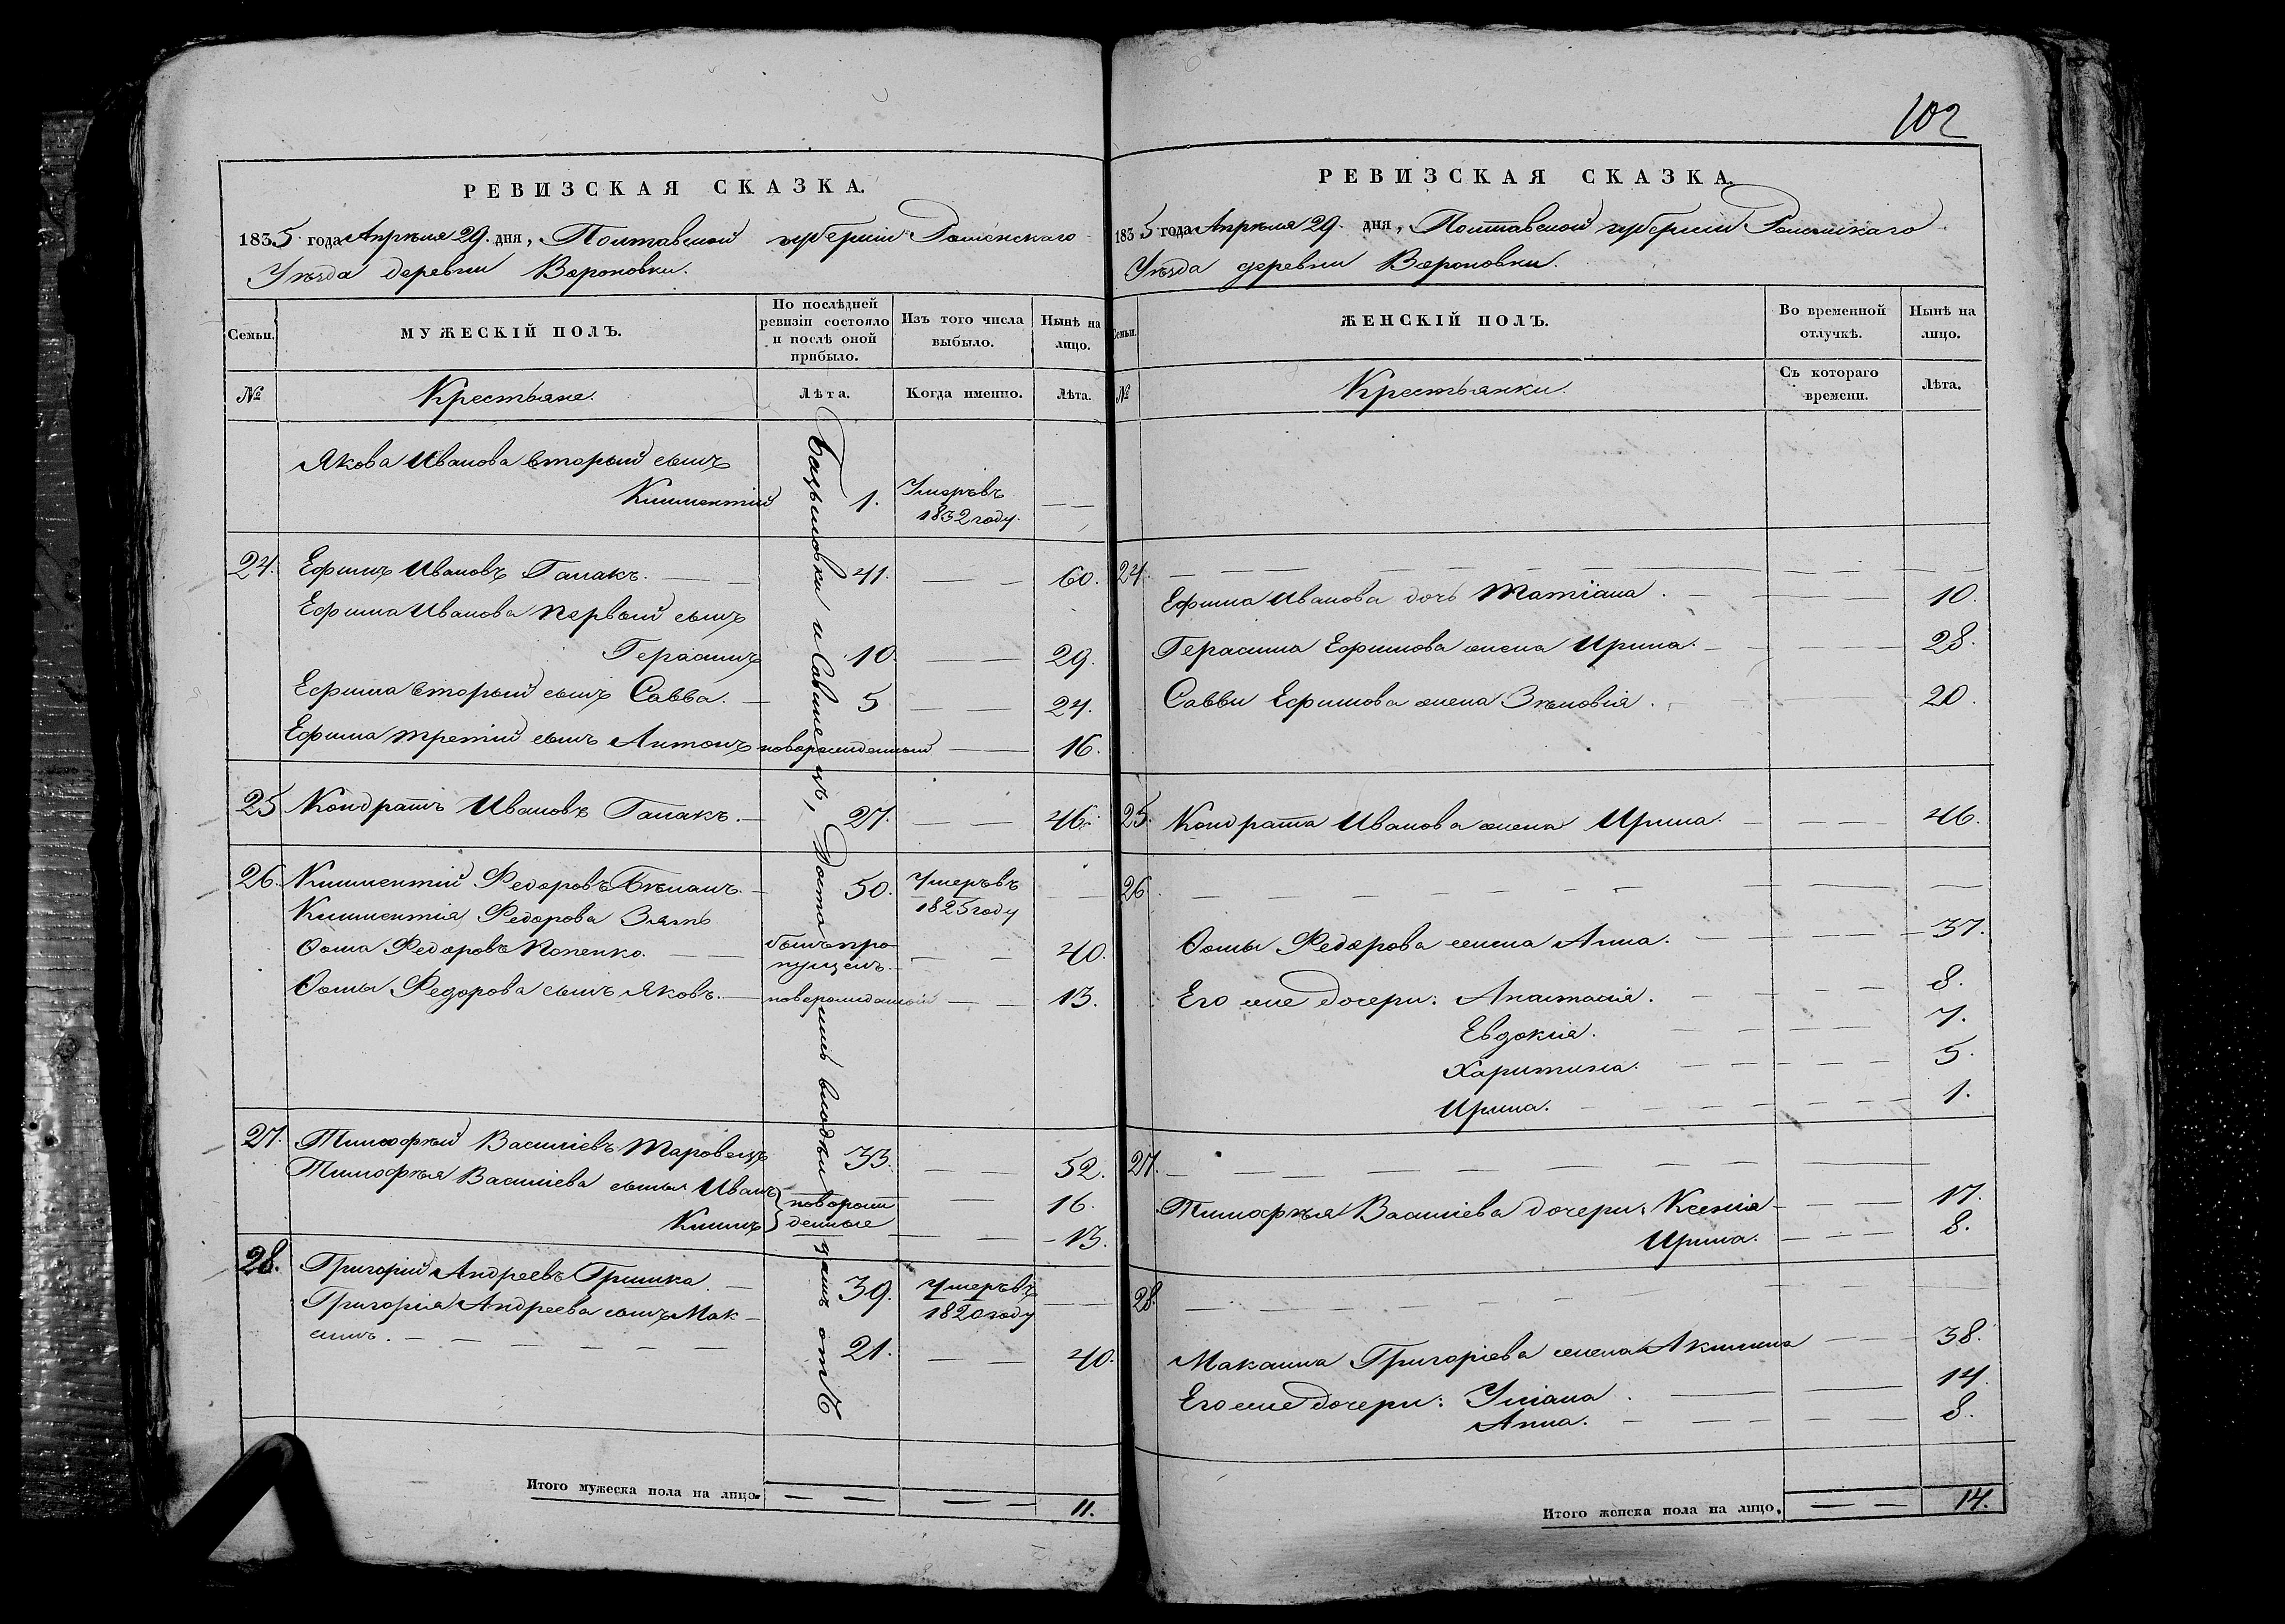 102
РЕВИЗСКАЯ СКАЗКА.
1835 года Апрѣля 29. дня, Полтавской губерніи Роменскаго
Уѣзда деревни Вороновки.
Семьи.
МУЖЕСКІЙ ПОЛЪ.
По послѣдней
ревизіи состояло
и послѣ оной
прибыло.
Изъ того числа
выбыло.
Нынѣ на
лицо.
№
Крестьяне.
Лѣта.
Когда именно.
Лѣта.
Якова Иванова вторый сынъ
Климентій 1. Умеръ въ
1832 году. — —
24. Ефимъ Ивановъ Гапакъ. — — 41. — — 60.
Ефима Иванова первый сынъ
Герасимъ 10. — — 29.
Ефима вторый сынъ Савва. — 5 — — 24.
Ефима третій сынъ Антонъ новорожденный — — 16.
25 Кондратъ Ивановъ Гапакъ. — 27. — — 46.
26. Климентій Федоровъ Бѣланъ. — 50. Умеръ въ
1825 году — —
Климентія Федорова Зять
Ѳома Федоровъ Попенко. — — былъ про
пущенъ. — — 40.
Ѳомы Федорова сынъ Яковъ. — новорожденный — — 13.
27. Тимофѣй Васильевъ Таровецъ 33. — — 52.
Тимофѣя Васильева сынъя Иванъ новорож — 16.
Климъ денные — — 13.
28. Григорій Андреевъ Гришка — 39. Умеръ въ
1820 году — —
Григорія Андреева сынъ Мак-
симъ. — — — — — 21. — — 40.
Достались владѣнію
Итого мужеска пола на лицо. — — — — 11.
РЕВИЗСКАЯ СКАЗКА.
1835 года Апрѣля 29. дня, Полтавской губерніи Роменскаго
Уѣзда деревни Вороновки.
Семьи.
ЖЕНСКІЙ ПОЛЪ.
Во временной
отлучкѣ.
Нынѣ на
лицо.
№
Крестьянки.
Съ котораго
времени.
Лѣта.
24. — — — — — — — —
Ефима Иванова дочь Матіяна. — — — 10.
Герасима Ефимова жена Ирина. — — — 28.
Саввы Ефимова жена Зѣновія. — — 20.
25. Кондрата Иванова жена Ирина. — — — 46.
26. — — — — — — — —
Ѳомы Федорова жена Анна. — — — 37.
Его же дочери: Анастасія. — — — 8.
Евдокія. — — — 7.
Харитина. — — — 5.
Ирина. — — — 1.
27. — — — — — — — —
Тимофѣя Васильева дочери: Ксенія — — — 17.
Ирина. — — — 8.
28. — — — — — — —
Максима Григоріева жена Акилина — — 38.
Его же дочери: Уліана. — — 14.
Анна. — — — 8.
Итого женска пола на лицо. — — 14.